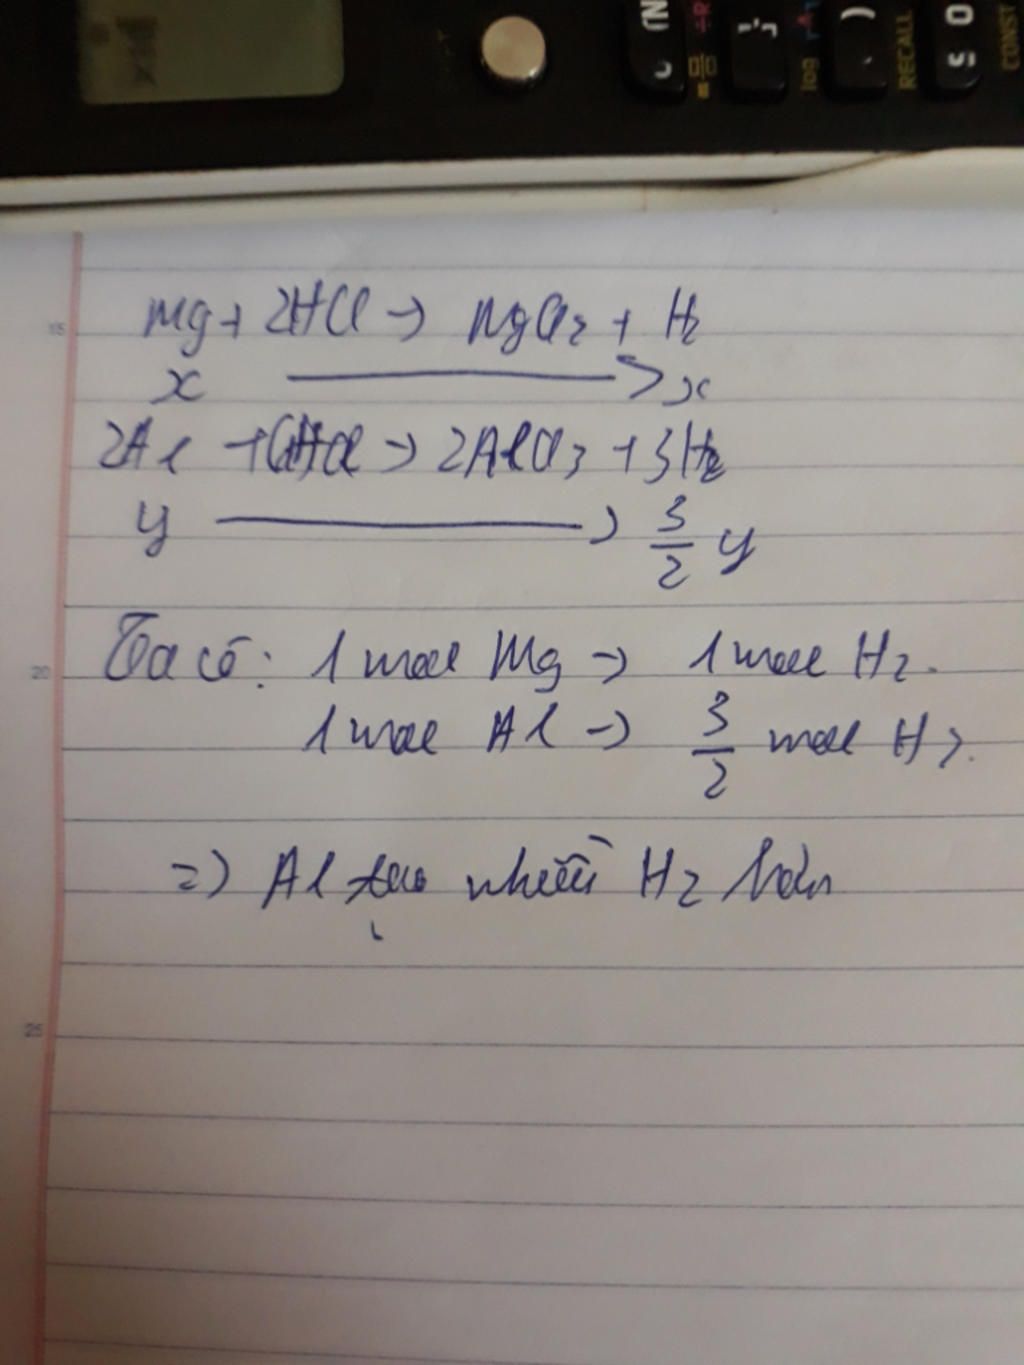 RECALL
CONST
log
15
Mg + 2HCl → MgCl2 + H2
x → x
2Al + 6HCl → 2AlCl3 + 3H2
y → 3/2 y
20
Ta có: 1 mol Mg → 1 mol H2.
1 mol Al → 3/2 mol H2.
=> Al tạo nhiều H2 hơn
25